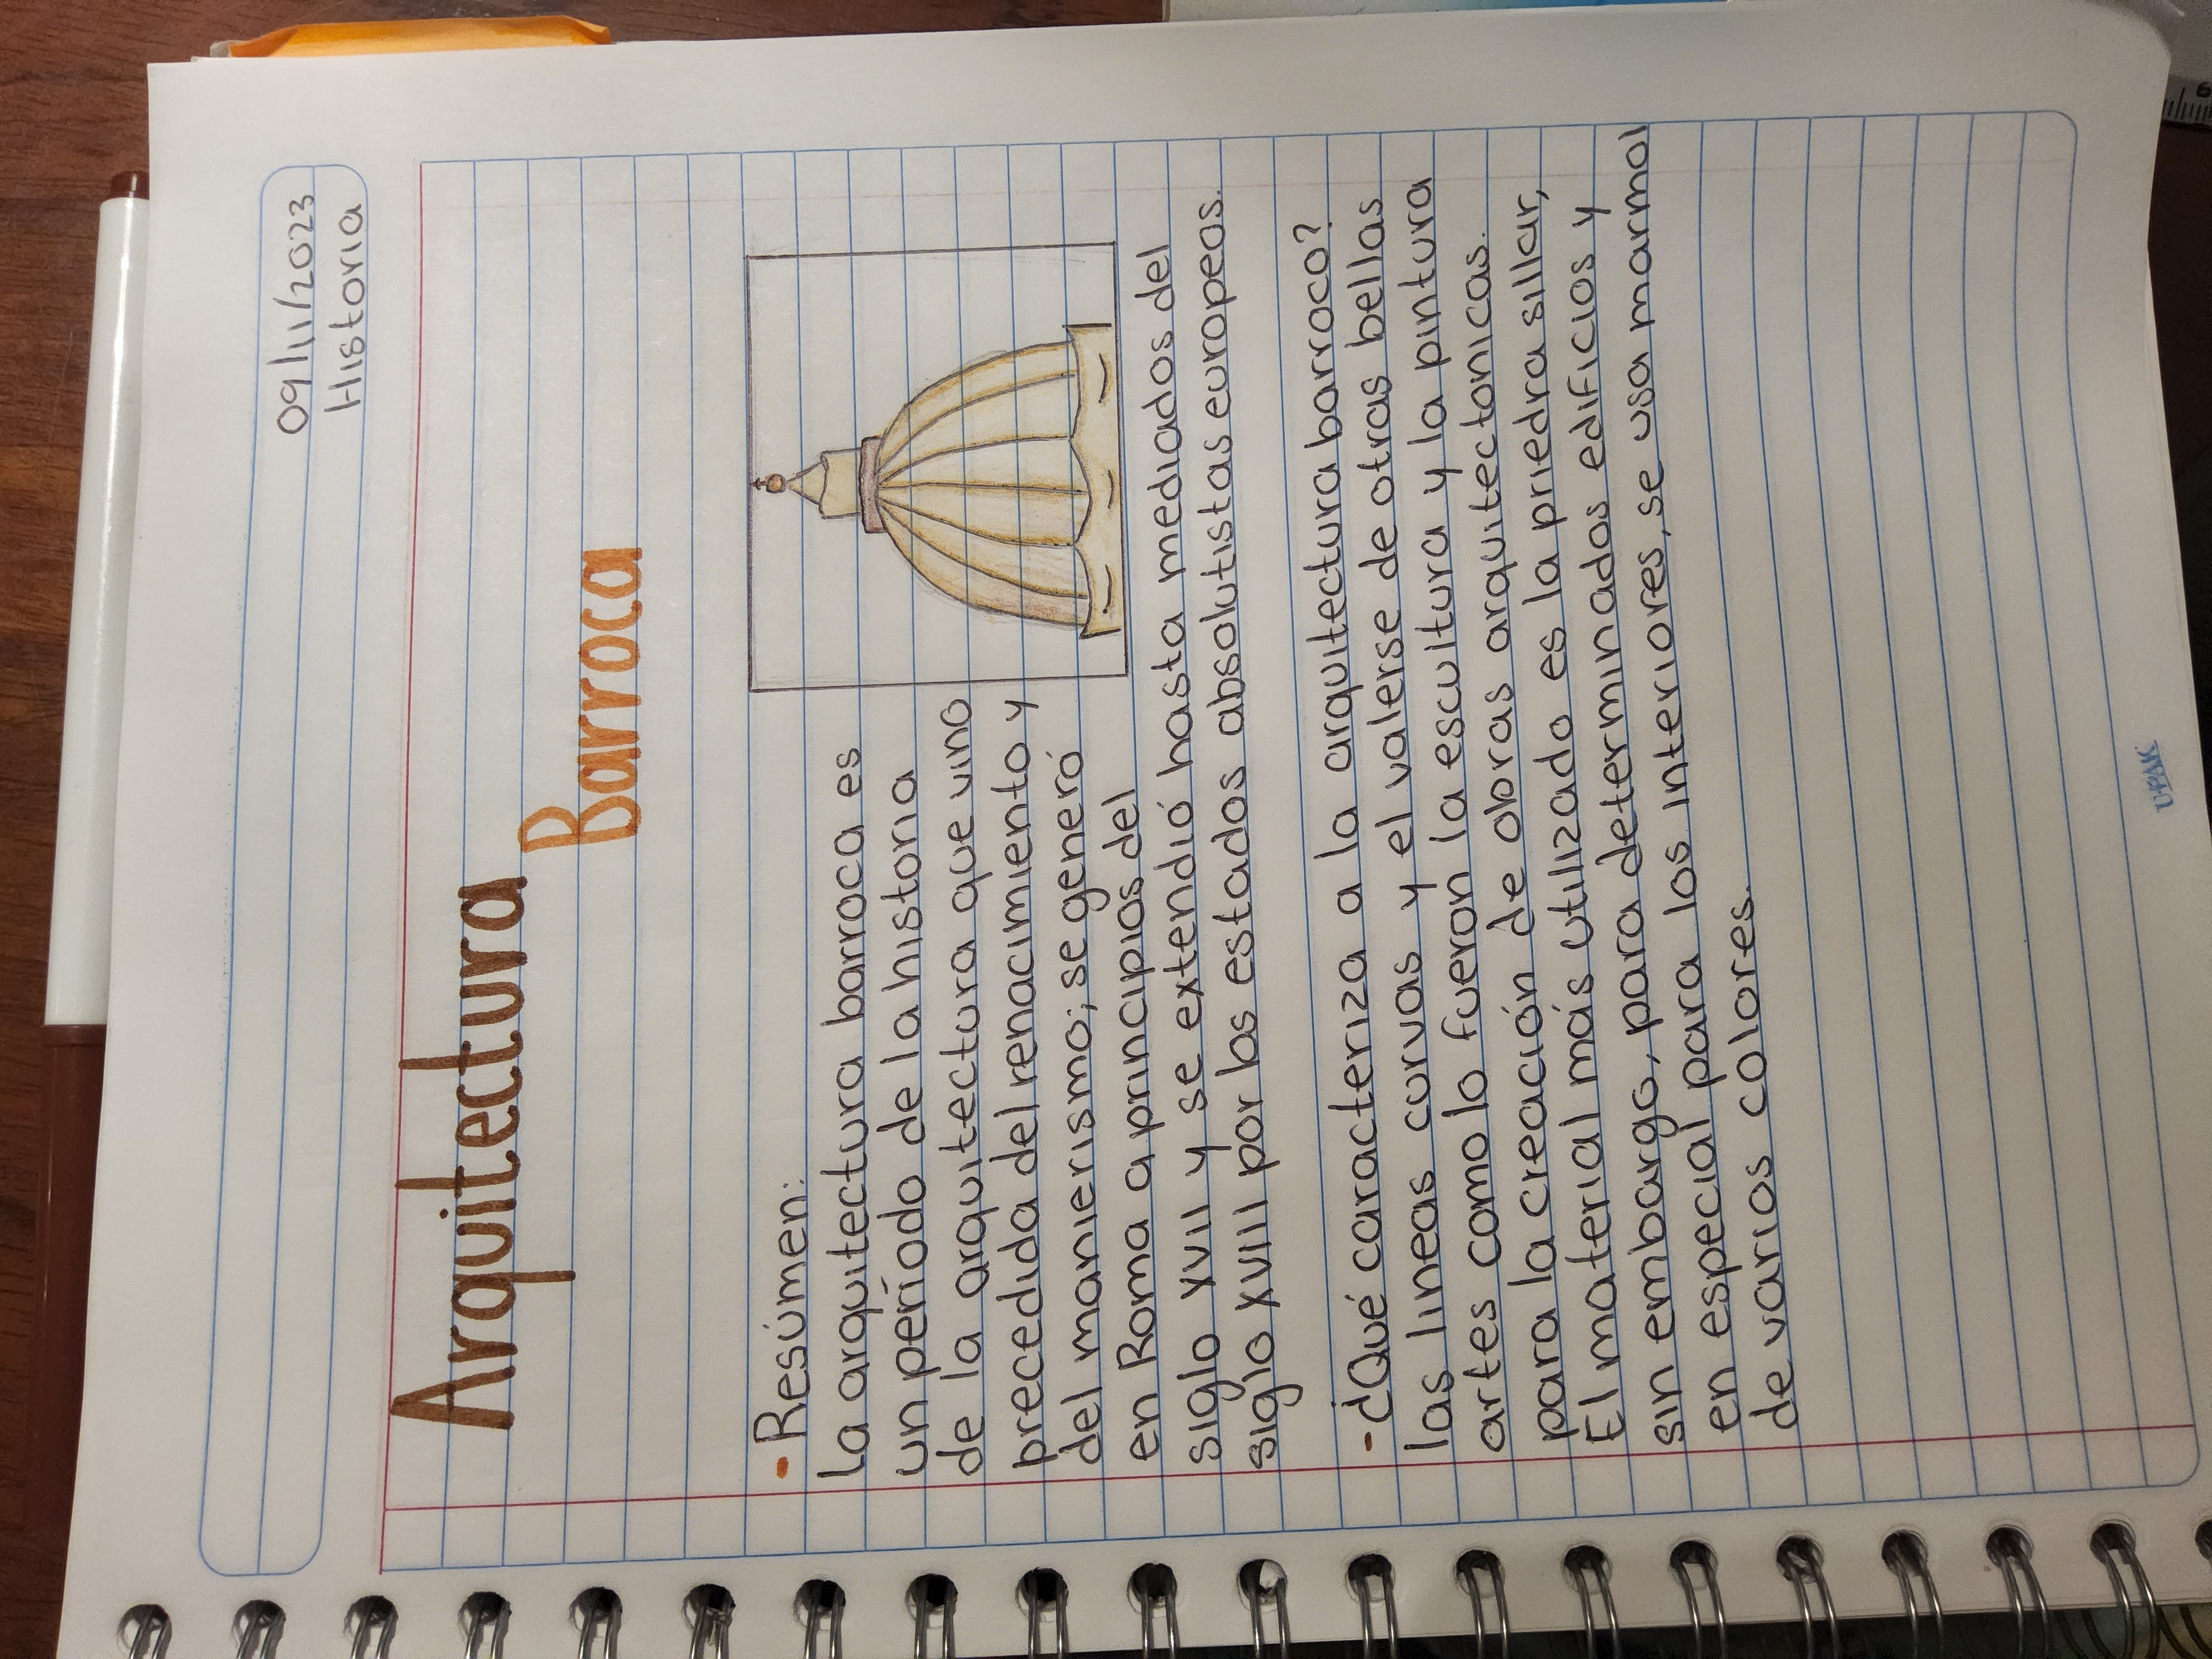 09/11/2023
Historia
Arquitectura
Barroca
- Resúmen:
La arquitectura barroca es
un período de la historia
de la arquitectura que vino
precedida del renacimiento y
del manierismo; se generó
en Roma a principios del
siglo XVII y se extendió hasta mediados del
siglo XVIII por los estados absolutistas europeos.
- ¿Qué caracteriza a la arquitectura barroco?
las lineas curvas y el valerse de otras bellas
artes como lo fueron la escultura y la pintura
para la creación de obras arquitectonicas.
El material más utilizado es la priedra sillar,
sin embargo, para determinados edificios y
en especial para los interiores, se usa marmol
de varios colores.
6